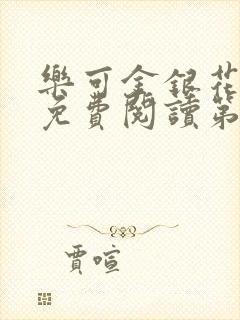 樂可金銀花
免費閱讀第
賈喧